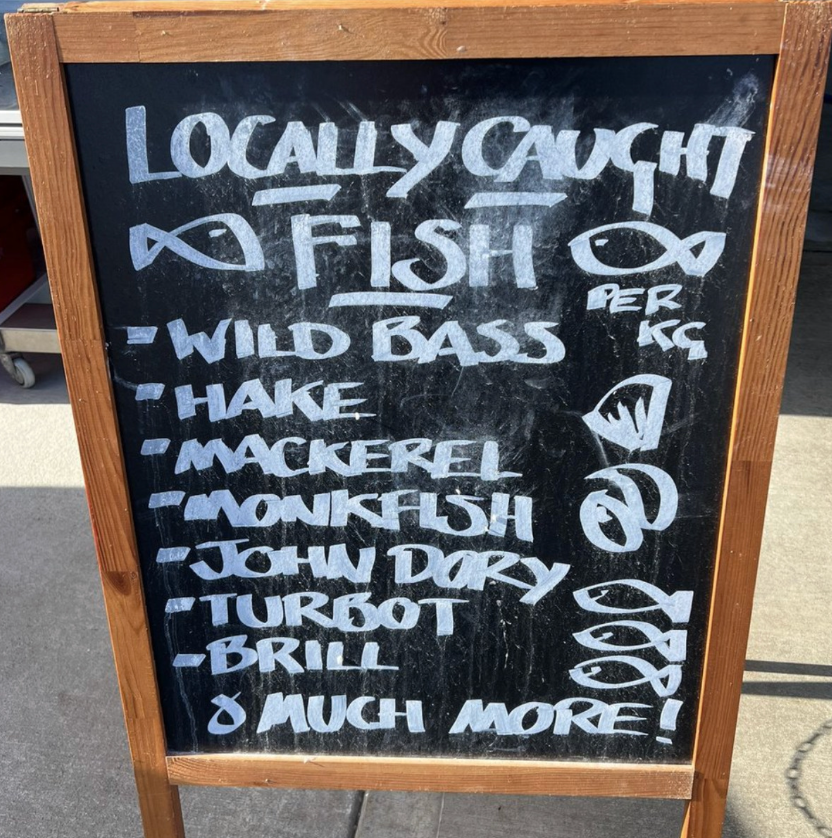 LOCALLY CAUGHT
FISH
PER
KG
- WILD BASS
- HAKE
- MACKEREL
- MONKFISH
- JOHN DORY
- TURBOT
- BRILL
& MUCH MORE!